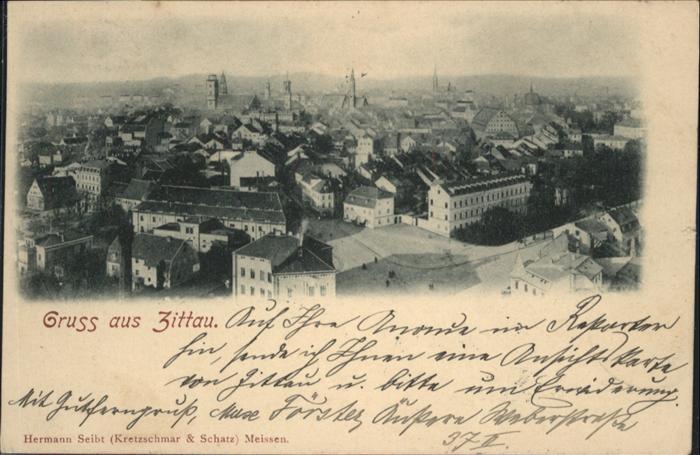 Gruss aus Zittau. Auf Ihre Anonce im Reporter
hin, sende ich Ihnen eine Ansichtskarte
von Zittau u. bitte um Erwiderung.
Mit Gutferngruß, Max Förster, Äußere Weberstraße
37 II.
Hermann Seibt (Kretzschmar & Schatz) Meissen.